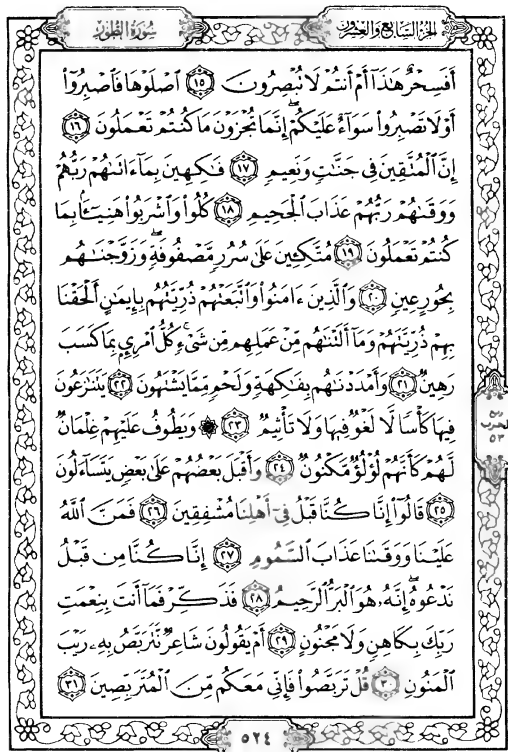 الجزء السابع والعشرون
سورة الطور
أَفَسِحْرٌ هَٰذَآ أَمْ أَنتُمْ لَا تُبْصِرُونَ ١٥ ٱصْلَوْهَا فَٱصْبِرُوٓا۟
أَوْ لَا تَصْبِرُوا۟ سَوَآءٌ عَلَيْكُمْ ۖ إِنَّمَا تُجْزَوْنَ مَا كُنتُمْ تَعْمَلُونَ ١٦
إِنَّ ٱلْمُتَّقِينَ فِى جَنَّٰتٍ وَنَعِيمٍ ١٧ فَٰكِهِينَ بِمَآ ءَاتَىٰهُمْ رَبُّهُمْ
وَوَقَىٰهُمْ رَبُّهُمْ عَذَابَ ٱلْجَحِيمِ ١٨ كُلُوا۟ وَٱشْرَبُوا۟ هَنِيٓـًٔۢا بِمَا
كُنتُمْ تَعْمَلُونَ ١٩ مُتَّكِـِٔينَ عَلَىٰ سُرُرٍ مَّصْفُوفَةٍ ۖ وَزَوَّجْنَٰهُم
بِحُورٍ عِينٍ ٢٠ وَٱلَّذِينَ ءَامَنُوا۟ وَٱتَّبَعَتْهُمْ ذُرِّيَّتُهُم بِإِيمَٰنٍ أَلْحَقْنَا
بِهِمْ ذُرِّيَّتَهُمْ وَمَآ أَلَتْنَٰهُم مِّنْ عَمَلِهِم مِّن شَىْءٍ ۚ كُلُّ ٱمْرِئٍۭ بِمَا كَسَبَ
رَهِينٌ ٢١ وَأَمْدَدْنَٰهُم بِفَٰكِهَةٍ وَلَحْمٍ مِّمَّا يَشْتَهُونَ ٢٢ يَتَنَٰزَعُونَ
فِيهَا كَأْسًا لَّا لَغْوٌ فِيهَا وَلَا تَأْثِيمٌ ٢٣ ۞ وَيَطُوفُ عَلَيْهِمْ غِلْمَانٌ
لَّهُمْ كَأَنَّهُمْ لُؤْلُؤٌ مَّكْنُونٌ ٢٤ وَأَقْبَلَ بَعْضُهُمْ عَلَىٰ بَعْضٍ يَتَسَآءَلُونَ
٢٥ قَالُوٓا۟ إِنَّا كُنَّا قَبْلُ فِىٓ أَهْلِنَا مُشْفِقِينَ ٢٦ فَمَنَّ ٱللَّهُ
عَلَيْنَا وَوَقَىٰنَا عَذَابَ ٱلسَّمُومِ ٢٧ إِنَّا كُنَّا مِن قَبْلُ
نَدْعُوهُ ۖ إِنَّهُۥ هُوَ ٱلْبَرُّ ٱلرَّحِيمُ ٢٨ فَذَكِّرْ فَمَآ أَنتَ بِنِعْمَتِ
رَبِّكَ بِكَاهِنٍ وَلَا مَجْنُونٍ ٢٩ أَمْ يَقُولُونَ شَاعِرٌ نَّتَرَبَّصُ بِهِۦ رَيْبَ
ٱلْمَنُونِ ٣٠ قُلْ تَرَبَّصُوا۟ فَإِنِّى مَعَكُم مِّنَ ٱلْمُتَرَبِّصِينَ ٣١
ربع
الحزب
٥٣
٥٢٤